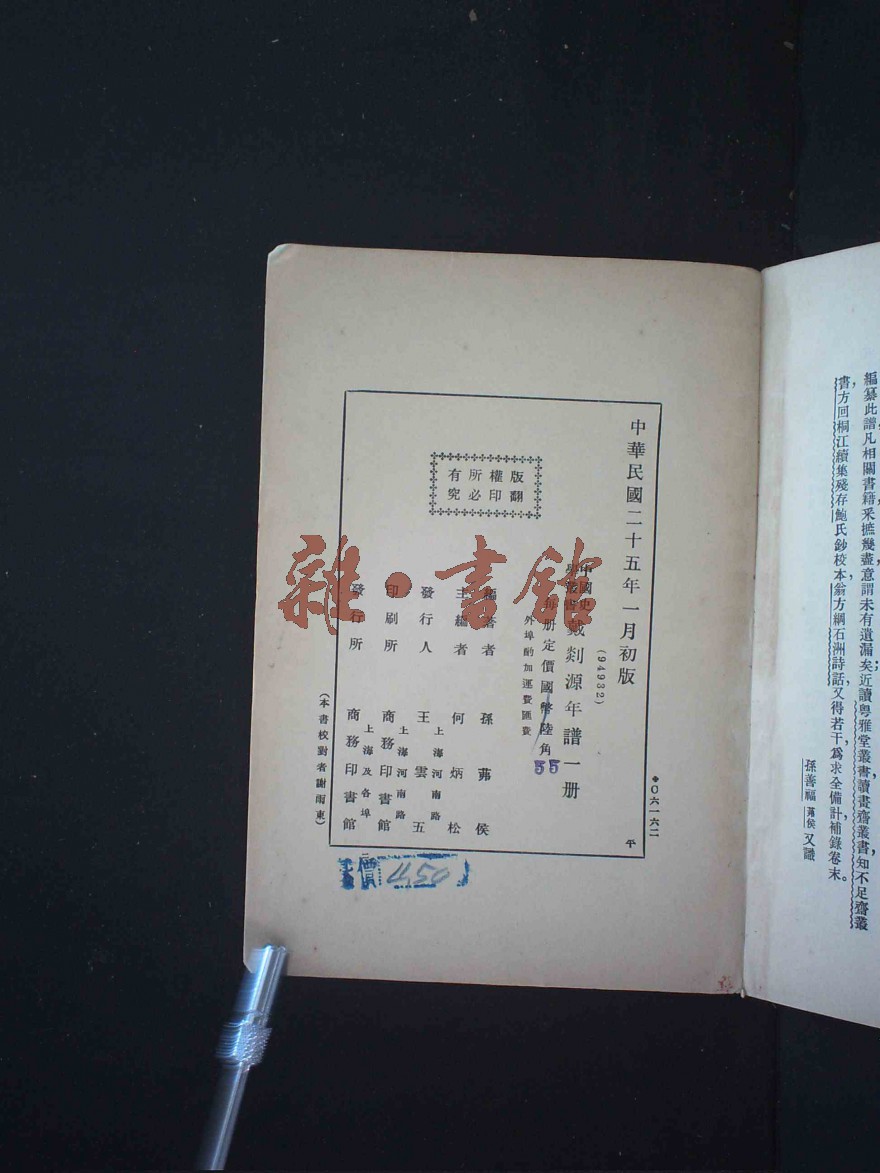 編纂此譜凡相關書籍釆摭幾盡意謂未有遺漏矣近讀粵雅堂叢書讀畫齋叢書知不足齋叢
書方回桐江續集殘存鮑氏鈔校本翁方綱石洲詩話又得若干爲求全備計補錄卷末。
孫善福 茀侯 又識
◆〇六一六二
平
中華民國二十五年一月初版
(94932)
中國史
學叢書 戴剡源年譜一册
每册定價國幣陸角
55
外埠酌加運費匯費
版權所有
翻印必究
編著者 孫茀侯
主編者 何炳松
上海河南路
發行人 王雲五
上海河南路
印刷所 商務印書館
上海及各埠
發行所 商務印書館
(本書校對者謝雨東)
價 450
雜·書館